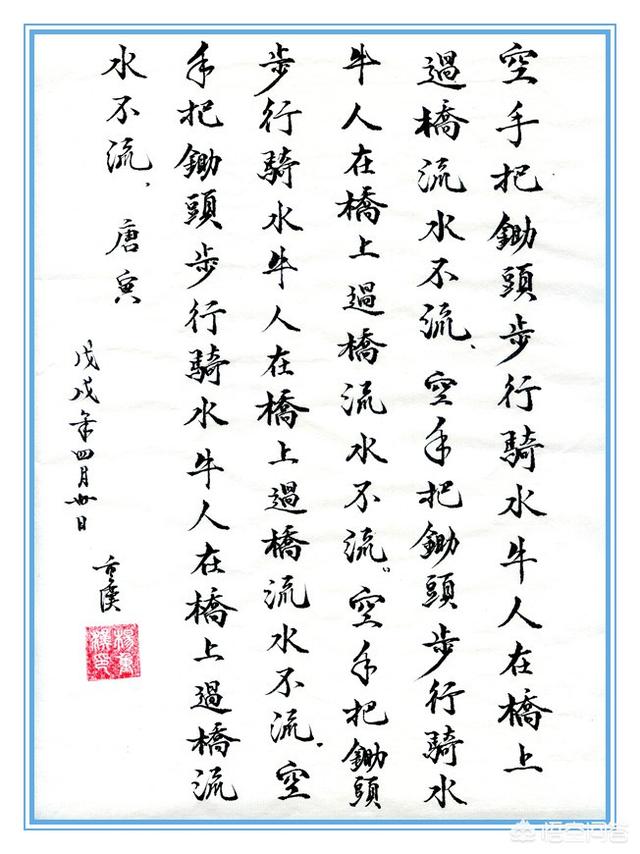 空手把鋤頭步行騎水牛人在橋上
過橋流水不流、空手把鋤頭步行騎水
牛人在橋上過橋流水不流。空手把鋤頭
步行騎水牛人在橋上過橋流水不流。空
手把鋤頭步行騎水牛人在橋上過橋流
水不流、唐寅
戊戌年四月卅日
悟空问答